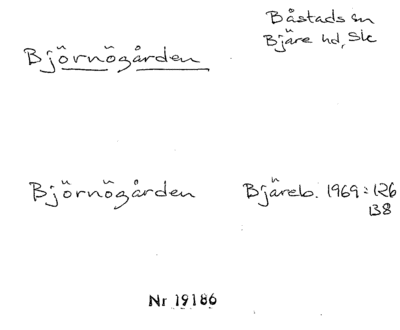 Björnögården
Båstads sn
Bjäre hd, Sk
Björnögården
Bjäreb. 1969: 126
138
Nr 19186